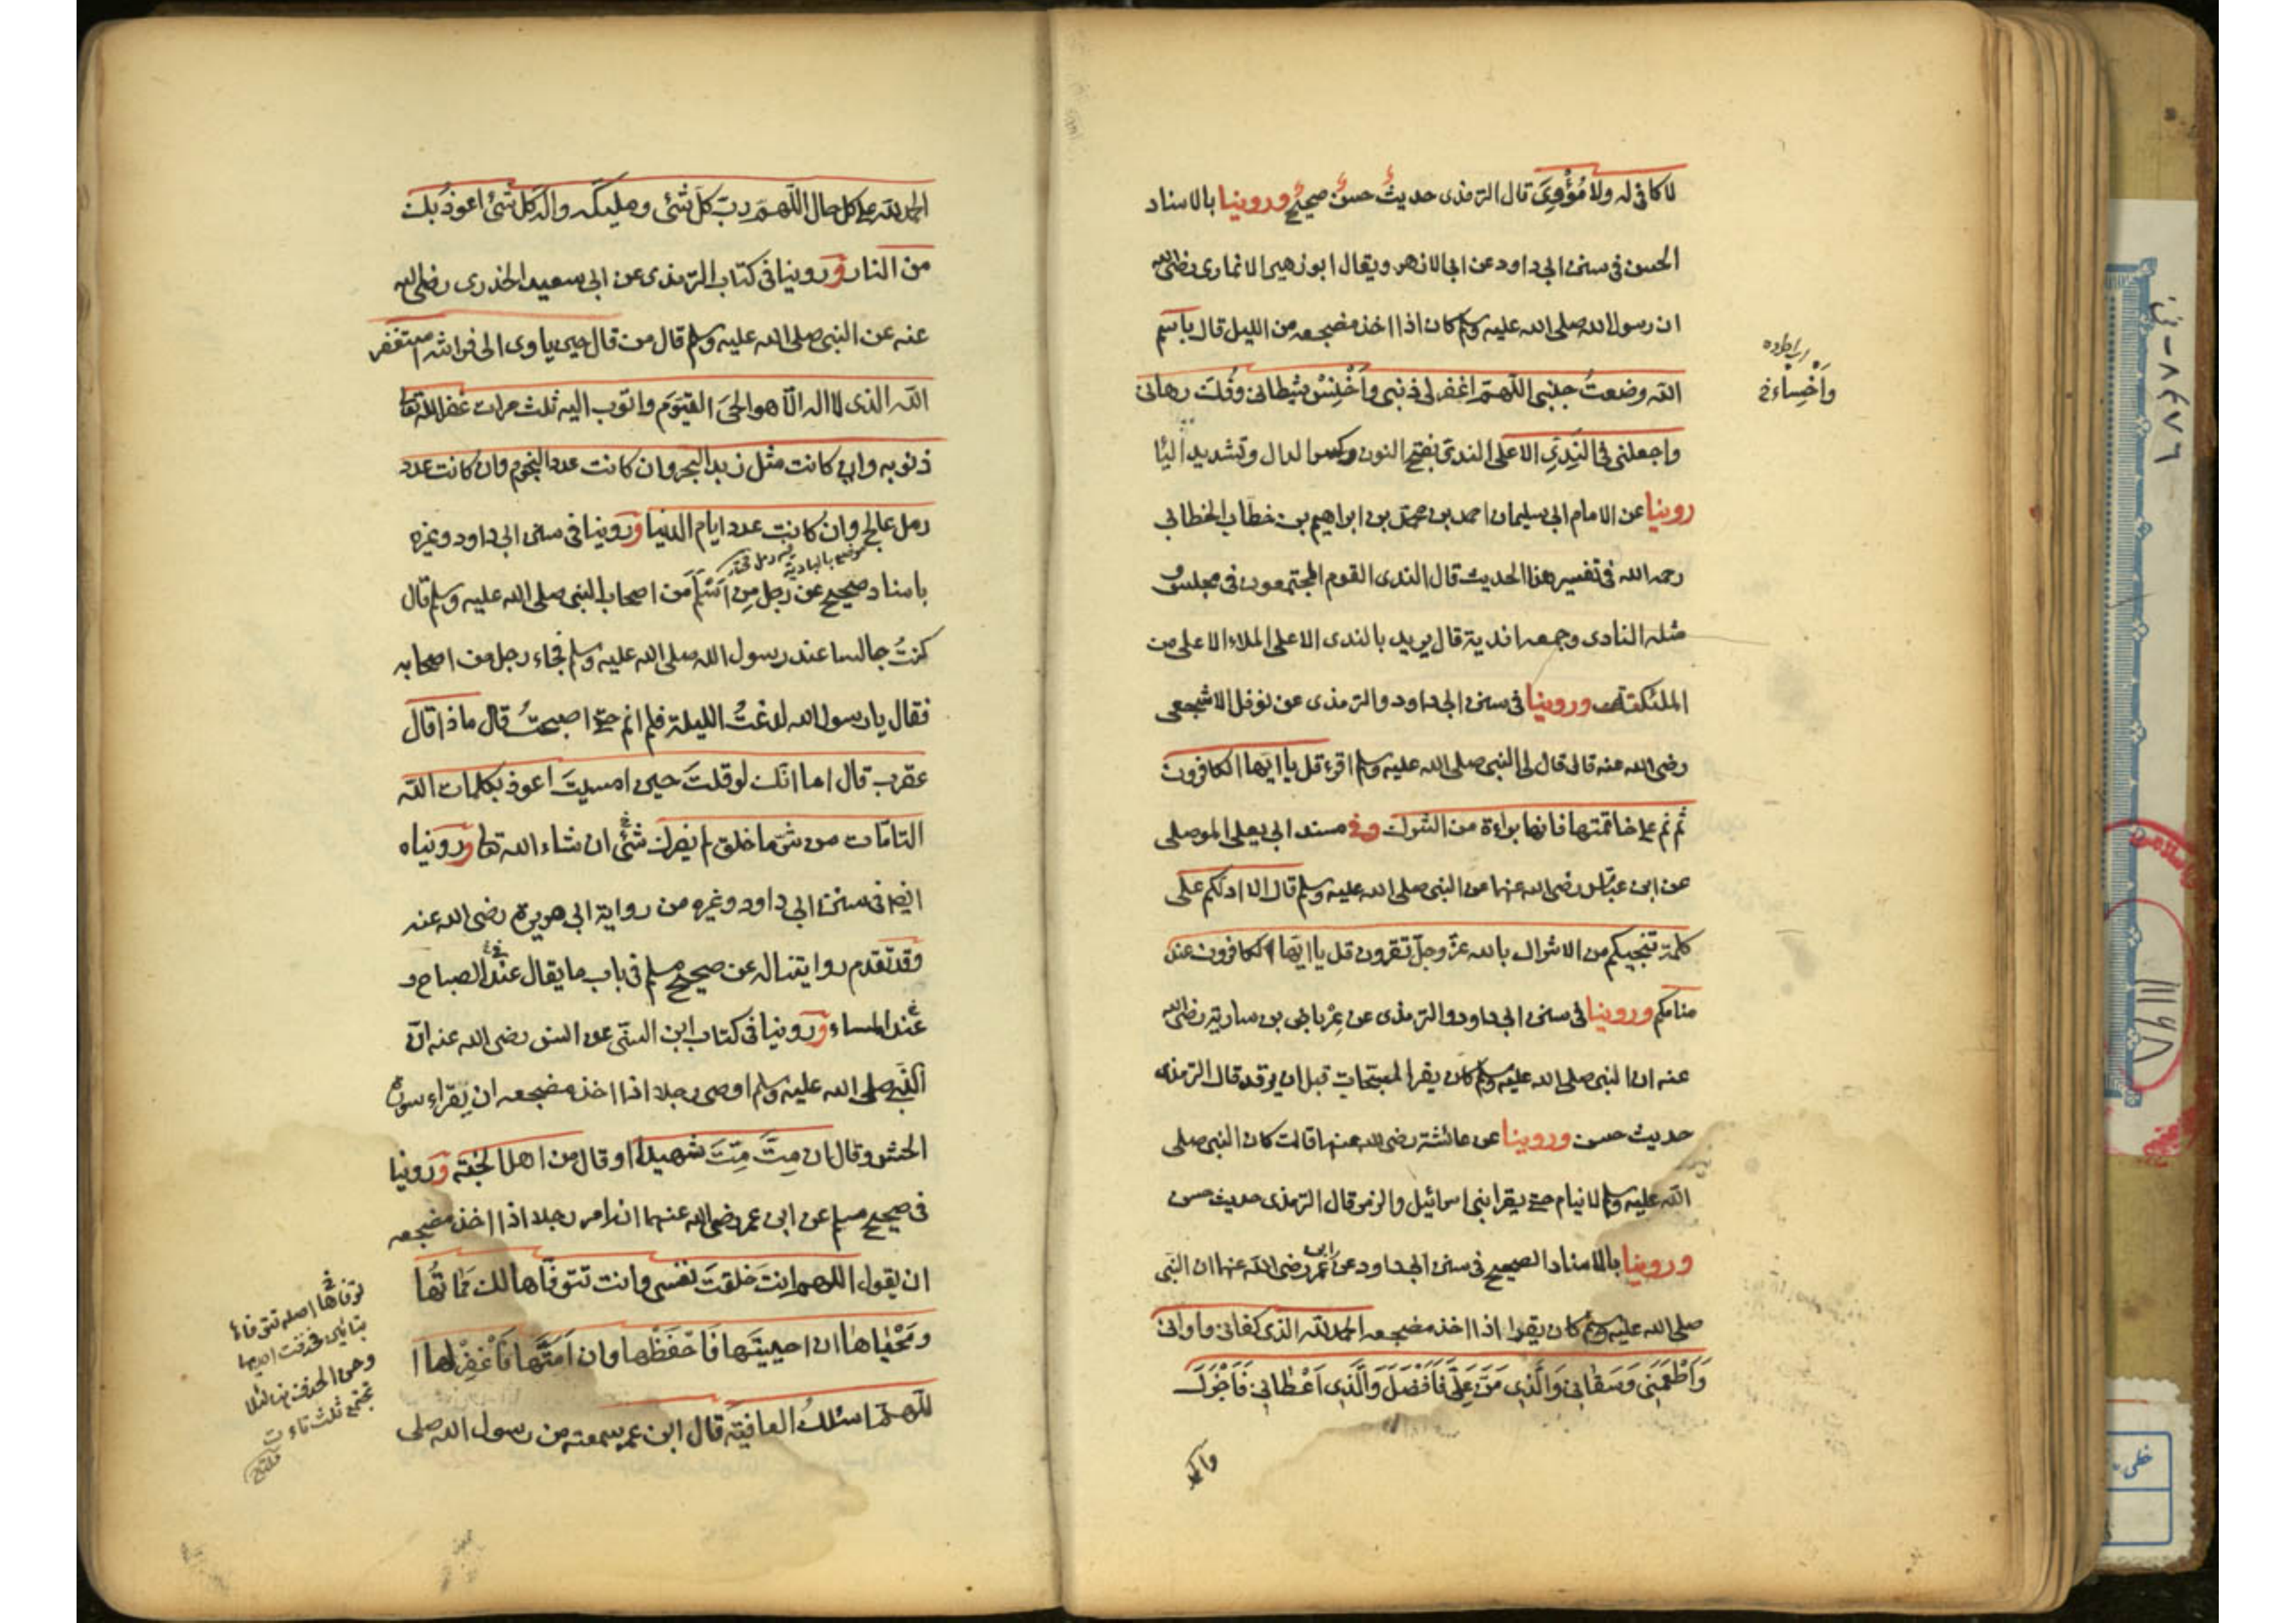 لا كافي له ولا مُؤْوِيَ قال الترمذى حديثٌ حسنٌ صحيحٌ وروينا بالاسناد
الحسن فى سنن ابى داود عن ابى الازهر ويقال ابو زهير الانمارى رضى الله
ان رسول الله صلى الله عليه وسلم كان اذا اخذ مضجعه من الليل قال باسم
الله وضعتُ جنبى اللّهمّ اغفر لى ذنبى وأخْنِسْ شيطانى وفُكّ رهانى
واجعلنى فى النَدِيّ الاعلى الندىّ بفتح النون وكسر الدال وتشديد اليا
روينا عن الامام ابى سليمان احمد بن محمد بن ابراهيم بن خطاب الخطابى
رحمه الله فى تفسير هذا الحديث قال الندى القوم المجتمعون فى مجلس و
مثله النادى وجمعه اندية قال يريد بالندى الاعلى الملاء الاعلى من
الملئكة وروينا فى سنن ابى داود والترمذى عن نوفل الاشجعى
رضى الله عنه قال قال لى النبى صلى الله عليه وسلم اقرء قل يا ايّها الكافرون
ثم نم على خاتمتها فانها براءة من الشرك وفى مسند ابى يعلى الموصلى
عن ابن عباس رضى الله عنهما عن النبى صلى الله عليه وسلم قال الا ادلكم على
كلمة تنجيكم من الاشراك بالله عزّ وجلّ تقرون قل يا ايّها الكافرون عند
منامكم وروينا فى سنن ابى داود والترمذى عن عِرْباض بن سارية رضى الله
عنه ان النبى صلى الله عليه وسلم كان يقرا المسبّحات قبل ان يرقد قال الترمذى
حديث حسن وروينا عن عائشة رضى الله عنها قالت كان النبى صلى
الله عليه وسلم لا ينام حتى يقرا بنى اسرائيل والزمر قال الترمذى حديث حسن
وروينا بالاسناد الصحيح فى سنن ابى داود عن ابن عمر رضى الله عنهما ان النبى
صلى الله عليه وسلم كان يقول اذا اخذ مضجعه الحمد لله الذى كفانى واوانى
وَاَطْعَمَنِى وَسَقانِى وَالَّذِى مَنَّ عَلَىَّ فَاَفْضَلَ وَالَّذِى اَعْطانِى فَاَجْزَلَ
والحمد
وأخْسِاء
الحمد لله على كل حال اللّهمّ ربّ كلّ شئى ومليكه واله كل شئى اعوذ بك
من النار وروينا فى كتاب الترمذى عن ابى سعيد الخدرى رضى الله
عنه عن النبى صلى الله عليه وسلم قال من قال حين ياوى الى فراشه استغفر
الله الذى لا اله الّا هو الحىّ القيّوم واتوب اليه ثلث مرات غفر الله تعالى
ذنوبه وان كانت مثل زبد البحر وان كانت عدد النجوم وان كانت عدد
رمل عالج وان كانت عدد ايام الدنيا وروينا فى سنن ابى داود وغيره
موضع بالبادية
باسناد صحيح عن رجل من اَسْلَمَ من اصحاب النبى صلى الله عليه وسلم قال
كنتُ جالسا عند رسول الله صلى الله عليه وسلم فجاء رجل من اصحابه
فقال يا رسول الله لدغتُ الليلة فلم انم حتى اصبحتُ قال ماذا قال
عقرب قال اما انّك لو قلتَ حين امسيتَ اعوذ بكلمات الله
التامّات من شرّ ما خلق لم يضرك شئى ان شاء الله تعالى وروينا
ايضا فى سنن ابى داود وغيره من رواية ابى هريرة رضى الله عنه
وقد تقدم روايتنا له عن صحيح مسلم فى باب ما يقال عند الصباح و
عند المساء وروينا فى كتاب ابن السنّى عن انس رضى الله عنه انّ
النبى صلى الله عليه وسلم اوصى رجلا اذا اخذ مضجعه ان يقراء سورة
الحشر وقال ان مِتَّ مِتَّ شهيدا او قال من اهل الجنّة وروينا
فى صحيح مسلم عن ابن عمر رضى الله عنهما انه امر رجلا اذا اخذ مضجعه
ان يقول اللهم انتَ خلقتَ نفسى وانت تتوفّاها لك مماتُها
ومَحْياها ان احييتَها فَاحْفَظْها وان اَمَتَّها فَاغْفِرْ لها ا
للهمّ اسئلك العافية قال ابن عمر سمعته من رسول الله صلى
توفاها اصله تتوفاء
بتائين فحذفت احديهما
تجتمع ثلث تاءت
خطى